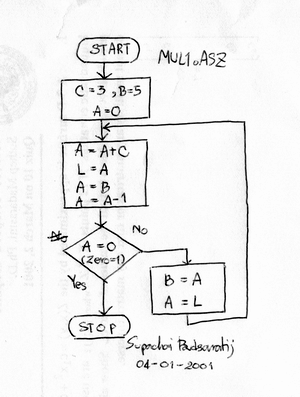 START
MUL1.ASZ
C=3, B=5
A=0
A = A+C
L = A
A = B
A = A-1
No
A = 0
(Zero=1)
Yes
B = A
A = L
STOP
04-01-2001